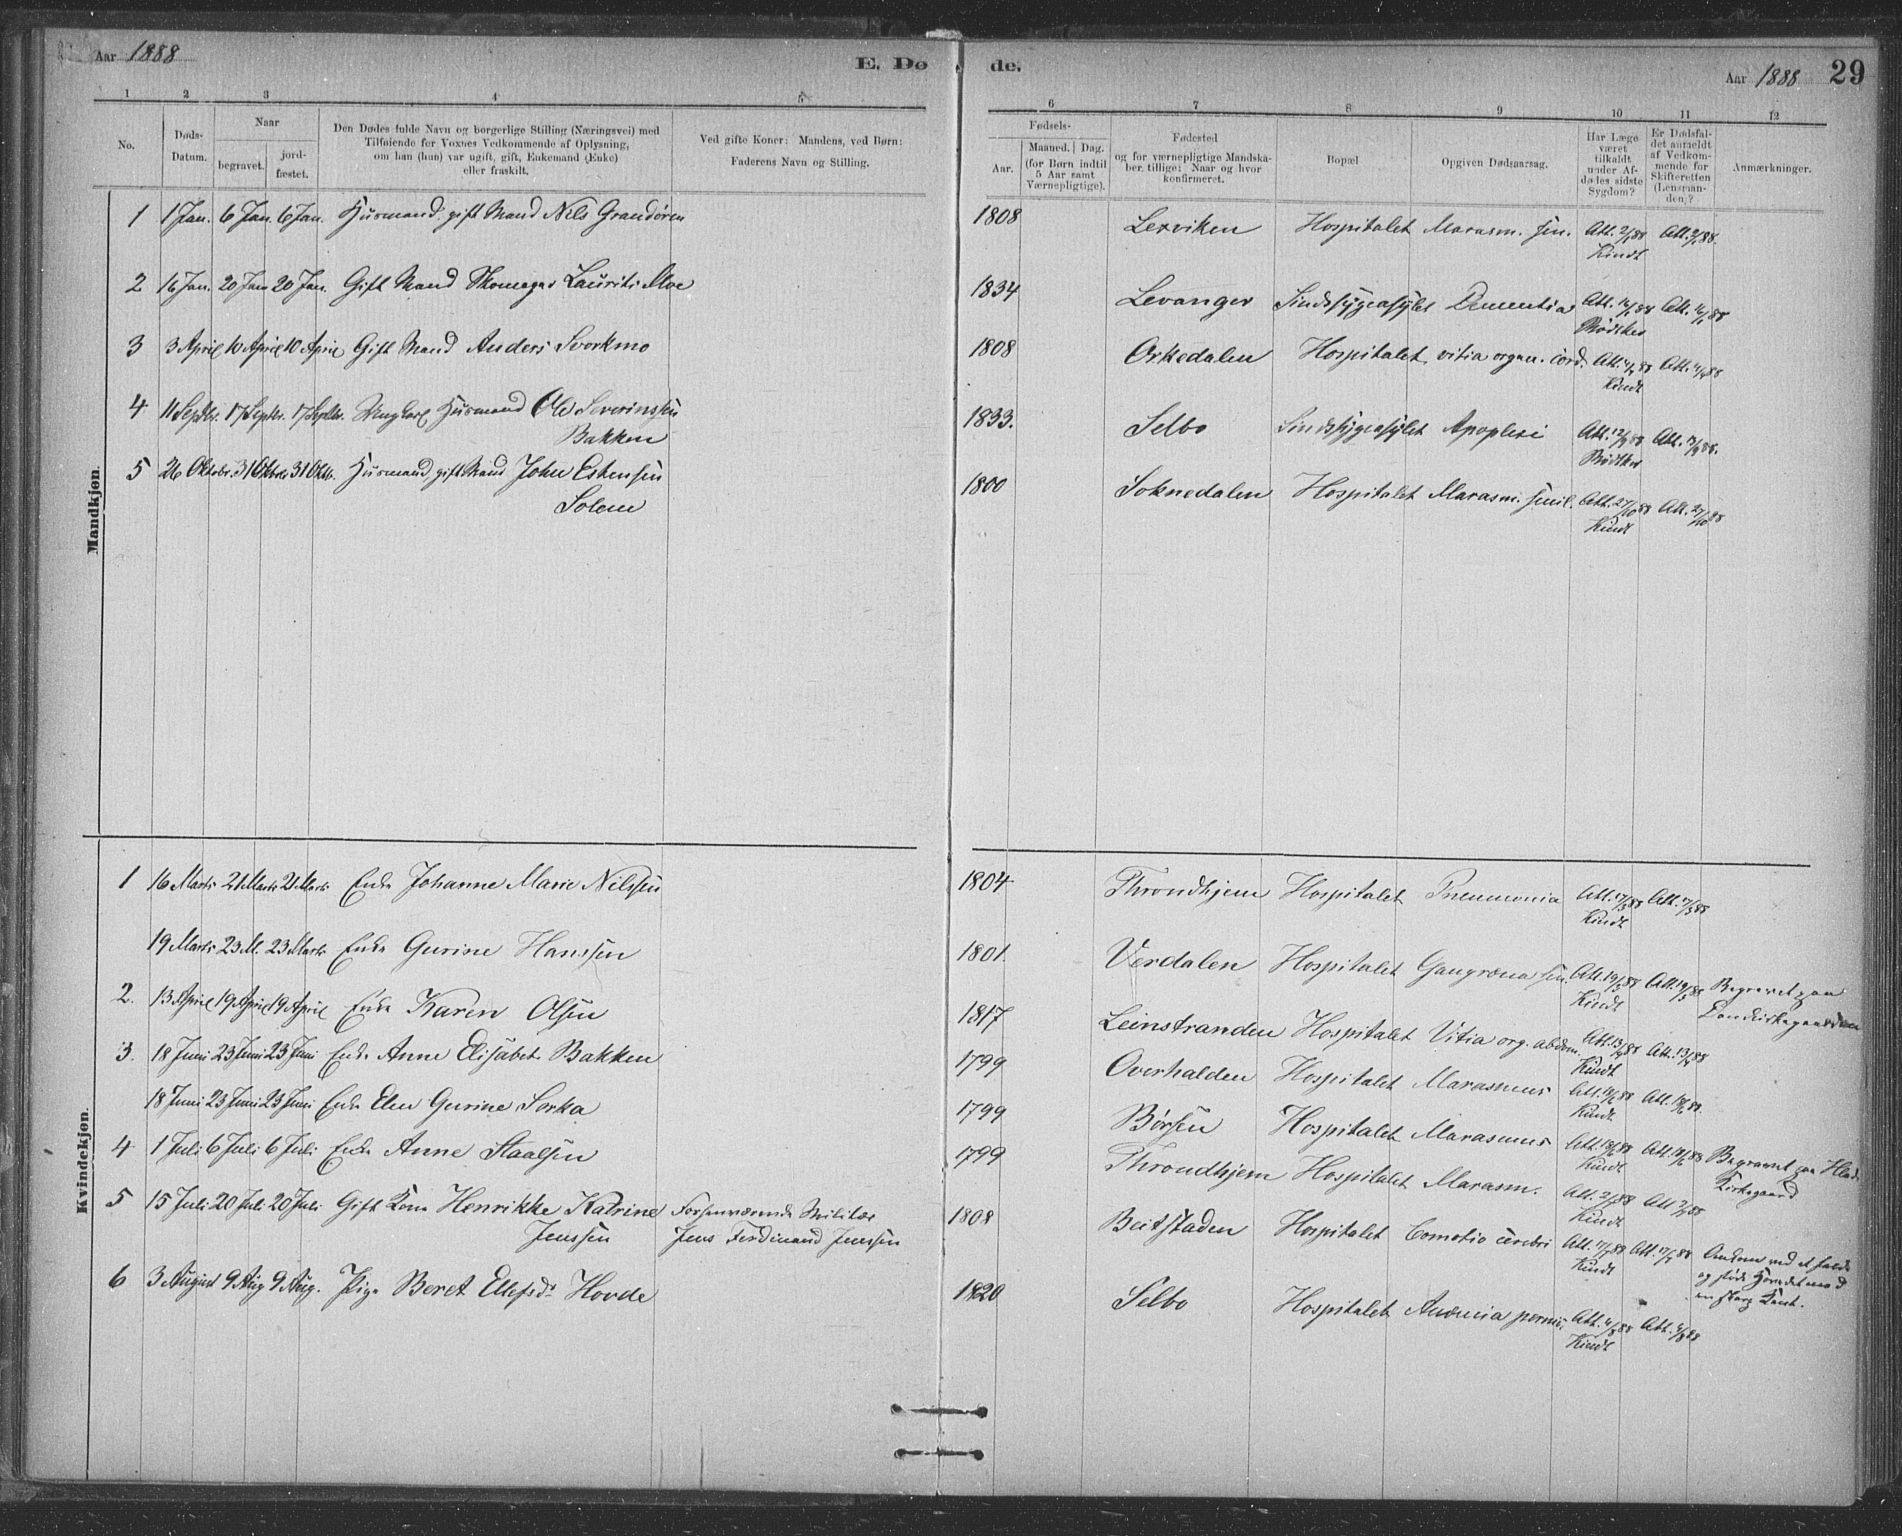 Aar 1888
E. Dø
de.
Aar 1888
29
1 2 3 4 5
6 7 8 9 10 11 12
No.
Døds-
Datum.
Naar
begravet.
jord-
fæstet.
Den Dødes fulde Navn og borgerlige Stilling (Næringsvei) med
Tilføiende for Voxnes Vedkommende af Oplysning,
om han (hun) var ugift, gift, Enkemand (Enke)
eller fraskilt.
Ved gifte Koner: Mandens, ved Børn:
Faderens Navn og Stilling.
Fødsels-
Aar.
Maaned. Dag.
(for Børn indtil
5 Aar samt
Værnepligtige).
Fødested
og for værnepligtige Mandska-
ber tillige: Naar og hvor
konfirmeret.
Bopæl
Opgiven Dødsaarsag.
Har Læge
været
tilkaldt
under Af-
dødes sidste
Sygdom?
Er Dødsfal-
det anmeldt
af Vedkom-
mende for
Skifteretten
(Lensman-
den)?
Anmærkninger.
Mandkjøn.
1 1 Jan. 6 Jan. 6 Jan. Husmand, gift Mand Nils Grandøren 1808 Lexviken Hospitalet Marasm. sen. Att. 2/1 88 Att. 2/1 88.
Kindt
2 16 Jan. 20 Jan 20 Jan. Gift Mand Skomager Laurits Moe 1834 Levanger Sindssygeasylet Dementia Att. 16/1 88 Att. 16/1 88
Bødtker
3 3 April 10 April 10 April Gift Mand Anders Svorkmo 1808 Orkedalen Hospitalet vitia organ. cord. Att. 4/4 88 Att. 4/4 88
Kindt
4 11 Septbr. 17 Septbr. 17 Septbr. Ungkarl Husmand Ole Severinssen 1833. Selbo Sindssygeasylet Apoplexi Att. 12/9 88 Att. 13/9 88.
Bakken Bødtker
5 26 Oktobr. 31 Oktobr 31 Oktbr. Husmand, gift Mand John Estensen 1800 Soknedalen Hospitalet Marasm. senil. Att. 27/10 88 Att. 27/10 88
Solem Kindt
Kvindekjøn.
1 16 Marts 21 Marts 21 Marts Enke Johanne Marie Nilssen 1804 Throndhjem Hospitalet Pneumonia Att. 17/3 88 Att. 17/3 88
Kindt
19 Marts 23 M. 23 Marts Enke Gurine Hanssen 1801. Verdalen Hospitalet Gangræna sen. Att. 19/3 88 Att. 19/3 88 Begravet paa
Kindt Domkirkegaarden
2. 13 April 19 April 19 April Enke Karen Olsen 1817 Leinstranden Hospitalet Vitia org. abdom. Att. 13/4 88 Att. 13/4 88
Kindt
3. 18 Juni 23 Juni 23 Juni Enke Anne Elisabet Bakken 1799 Overhalden Hospitalet Marasmus Att. 18/6 88 Att. 18/6 88.
Kindt
18 Juni 23 Juni 23 Juni Enke Elen Gurine Sorka 1799 Børsen Hospitalet Marasmus Att. 18/6 88 Att. 18/6 88 Begravet paa Lade
Kindt Kirkegaard
4 1 Juli 6 Juli 6 Juli Enke Anne Staalsen 1799 Throndhjem Hospitalet Marasm. Att. 2/7 88 Att 2/7 88
Kindt
5 15 Juli 20 Juli 20 Juli Gift Kone Henrikke Katrine Forhenværende Militær 1808 Beitstaden Hospitalet Comotio cerebri Att. 17/7 88 Att. 17/7 88
Jenssen Jens Ferdinand Jenssen Kindt
ved et Fald
og stødt Hovedet mod
en skarp Kant.
6 3 August 9 Aug 9 Aug. Pige Beret Ellefsdr Hovde 1820 Selbo Hospitalet Anæmia pernic. Att. 4/8 88 Att. 4/8 88
Kindt